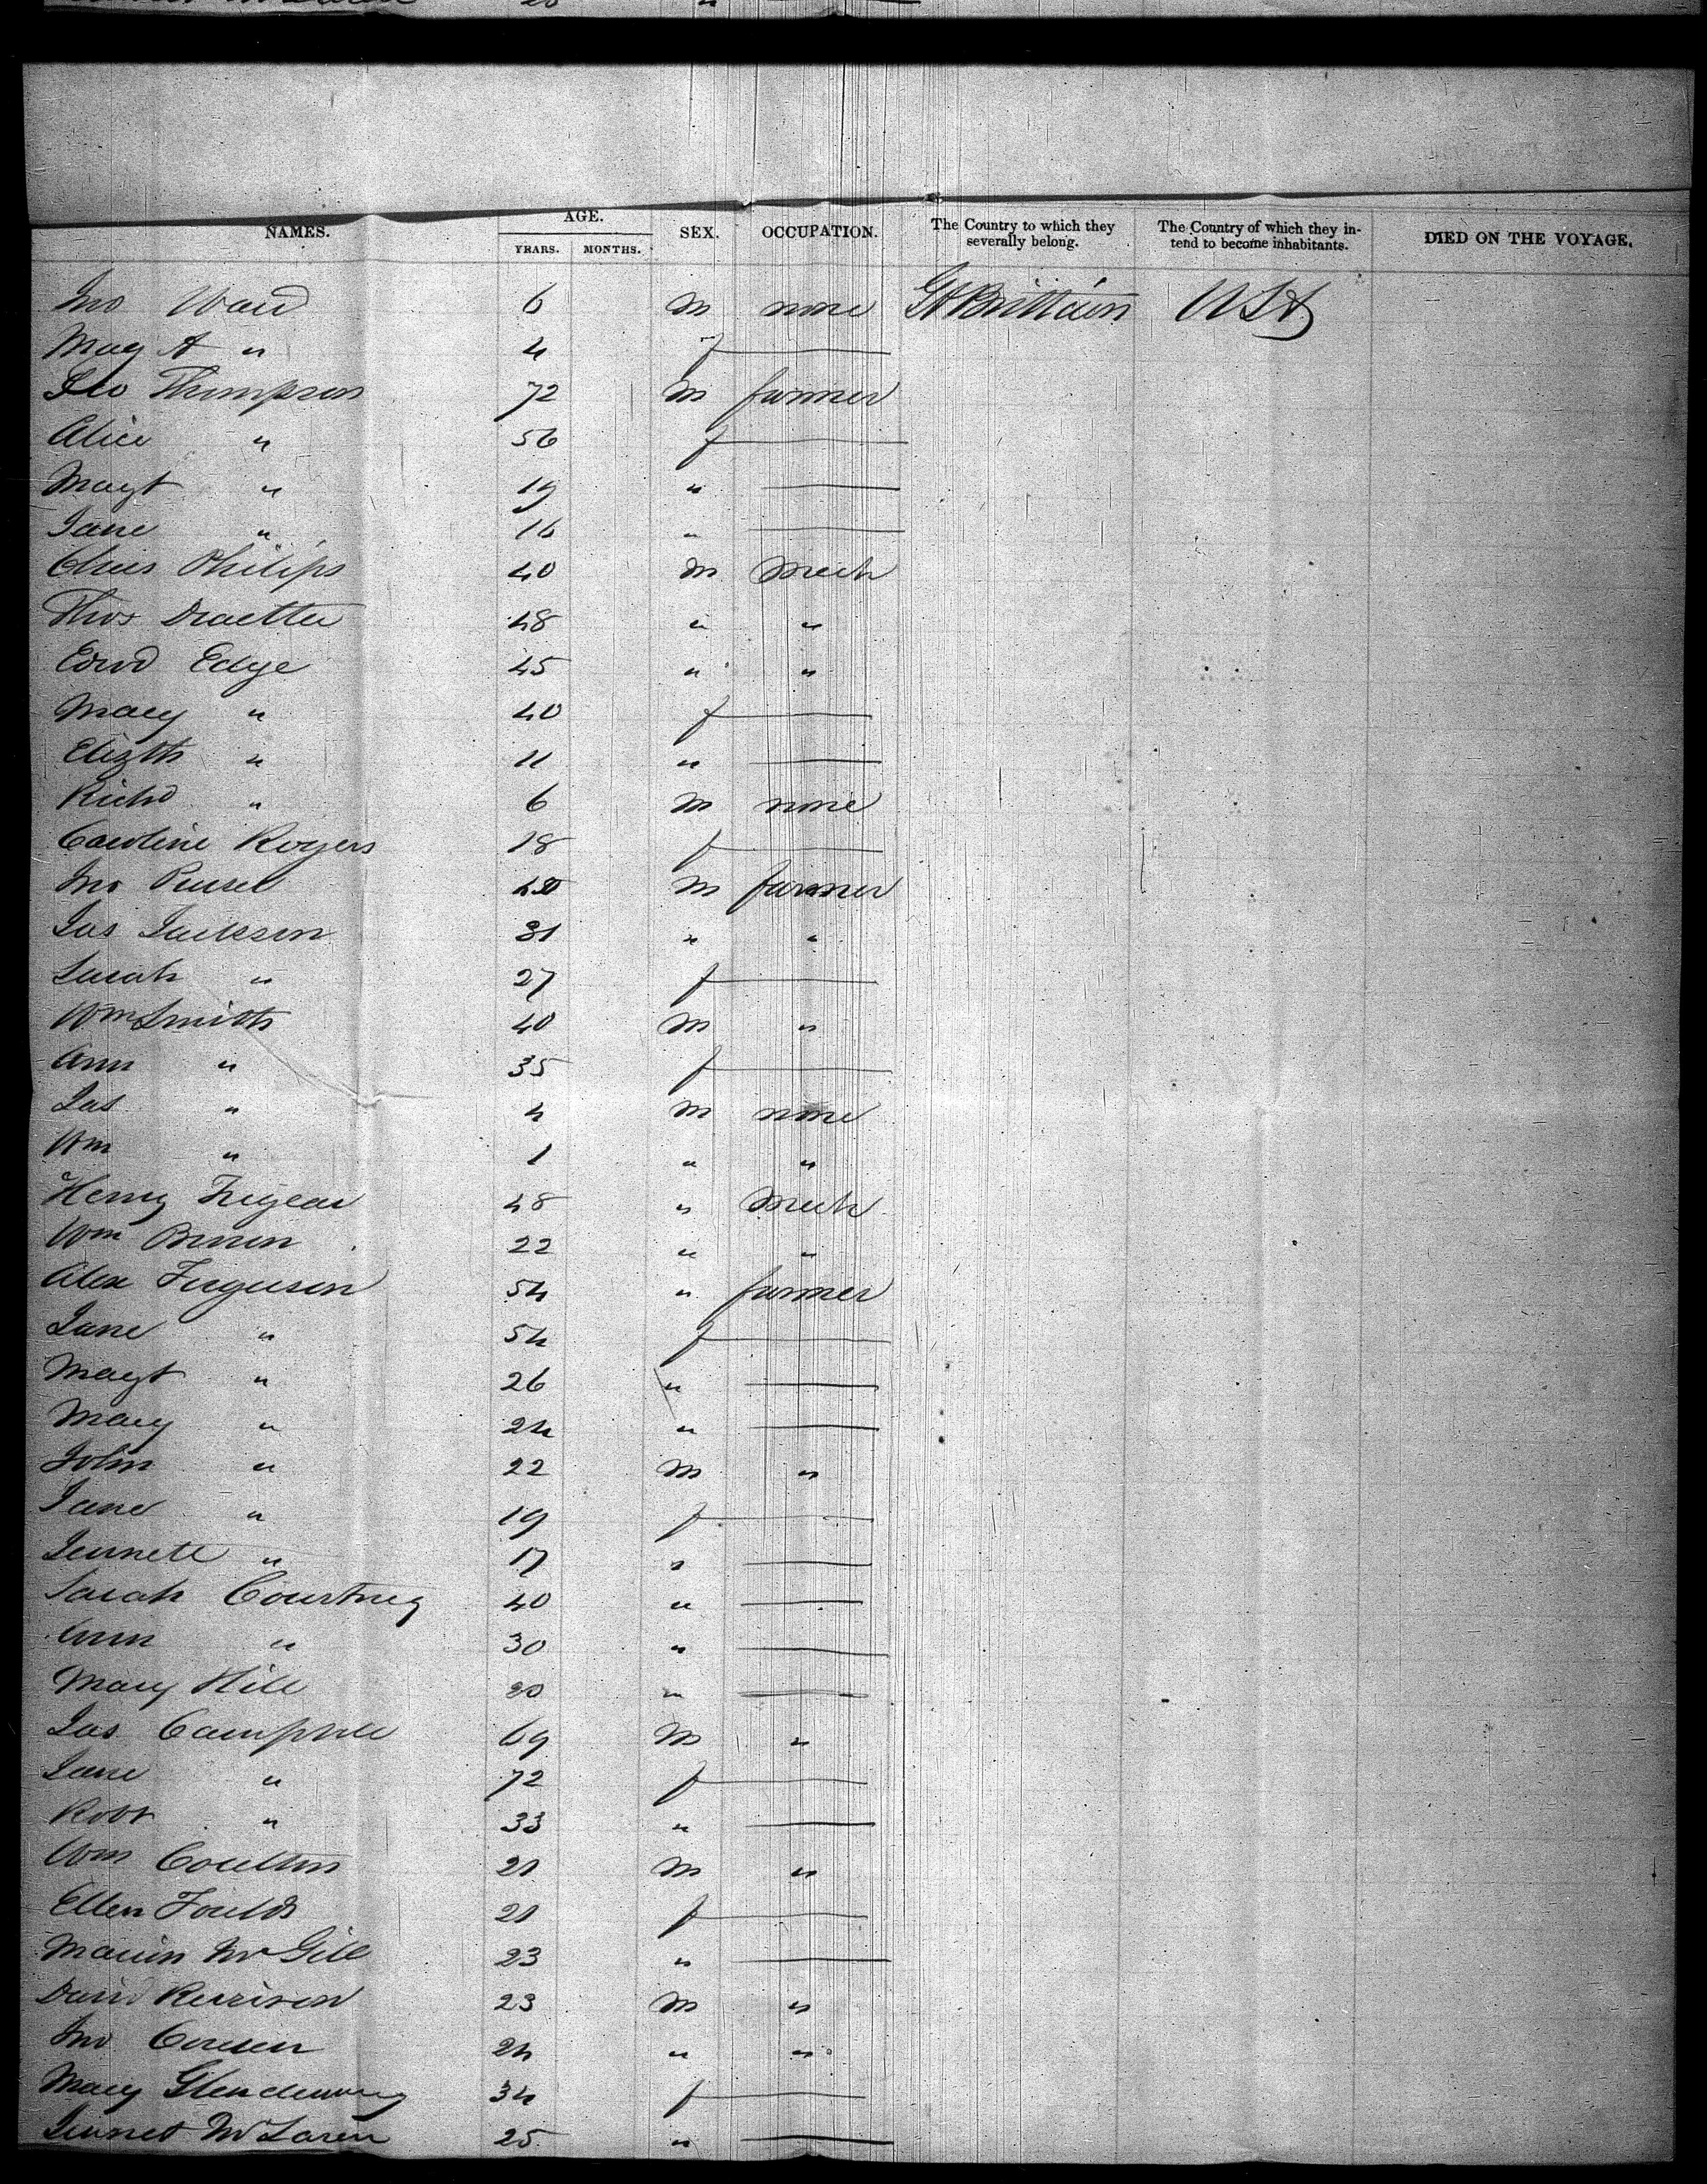 NAMES. AGE. SEX. OCCUPATION. The Country to which they severally belong. The Country of which they intend to become inhabitants. DIED ON THE VOYAGE.
YEARS. MONTHS.
Jno Ward 6 m none Gt Brittain USA
Mary A " 4 f —
Geo Thompson 72 m farmer
Alice " 56 f —
Magt " 19 " —
Jane " 16 " —
Chas Philips 40 m Mech
Thos 48 " "
Edwd Edge 45 " "
Mary " 40 f —
Elizth " 11 " —
Richd " 6 m none
Caroline Rogers 18 f —
Jno m farmer
Jas Jackson 31 " "
Sarah " 27 f —
Wm Smith 40 m "
Ann " 35 f —
Jas " 4 m none
Wm " 1 " "
Henry 48 " Mech
Wm 22 " "
Alex Ferguson 54 " farmer
Jane " 54 f —
Magt " 26 " —
Mary " 24 " —
John " 22 m "
Jane " 19 f —
Jennett " 17 " —
Sarah Courtney 40 " —
Ann " 30 " —
Mary Hill 20 " —
Jas Campbell 69 m "
Jane " 72 f —
Robt " 33 " —
Wm Coulton 21 m "
Ellen Foulds 21 f —
Marion McGill 23 " —
David 23 m "
Jno 24 " "
Mary Glendenning 34 f —
Jennet McLaren 25 " —